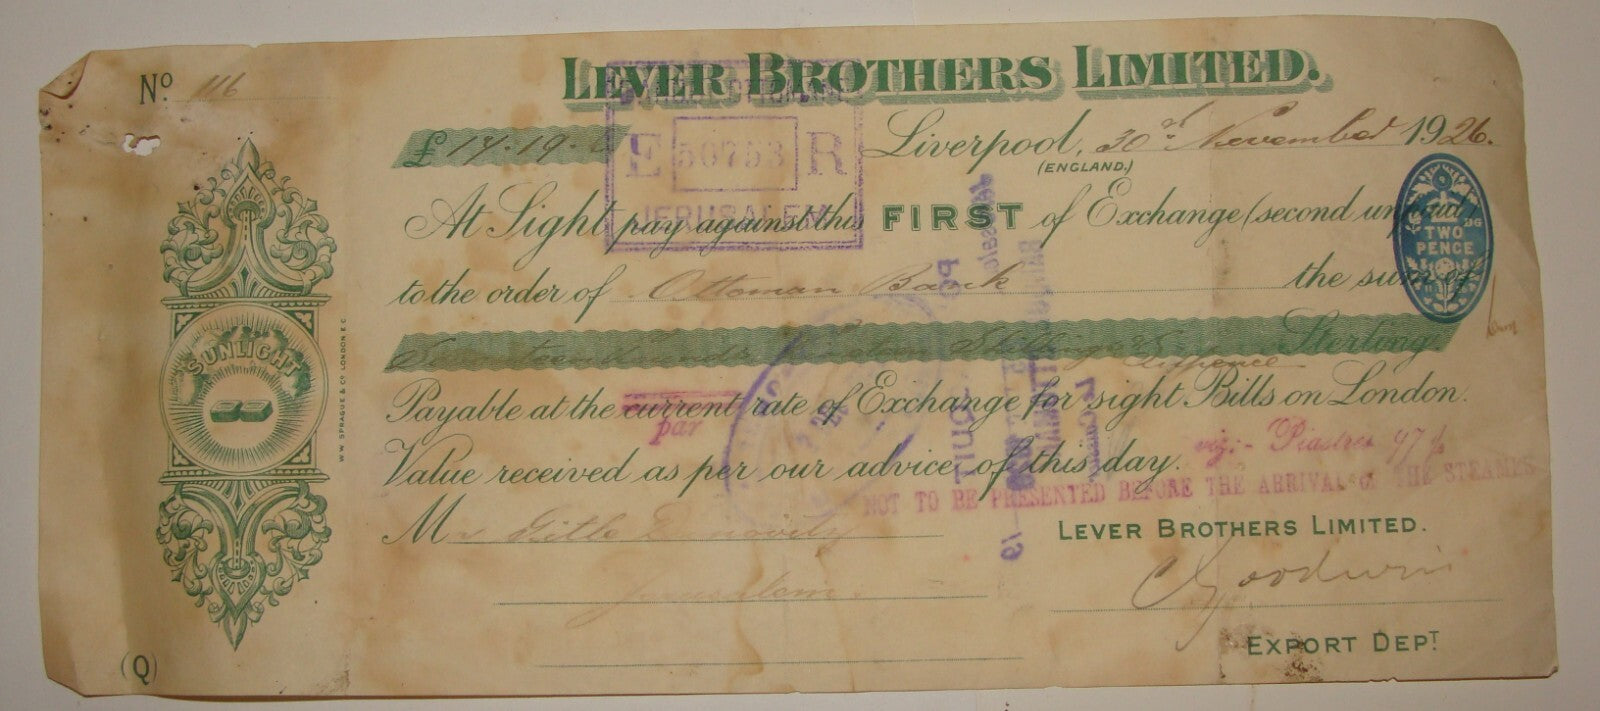 LEVER BROTHERS LIMITED.
No. 116
£ 17.19.
Liverpool, 30th November 1926.
(ENGLAND.)
E 50753 R
JERUSALEM
At Sight pay against this FIRST of Exchange (second unpaid)
TWO
PENCE
to the order of Ottoman Bank the sum of
Seventeen Pounds Nineteen Shillings & Sixpence Sterling
SUNLIGHT
WM SPRAGUE & CO LONDON E C
Payable at the current rate of Exchange for sight Bills on London.
par
viz:- Piastres 97½
Value received as per our advice of this day.
NOT TO BE PRESENTED BEFORE THE ARRIVAL OF THE STEAMER
M
LEVER BROTHERS LIMITED.
Jerusalem.
C Goodwin
(Q)
EXPORT DEPT